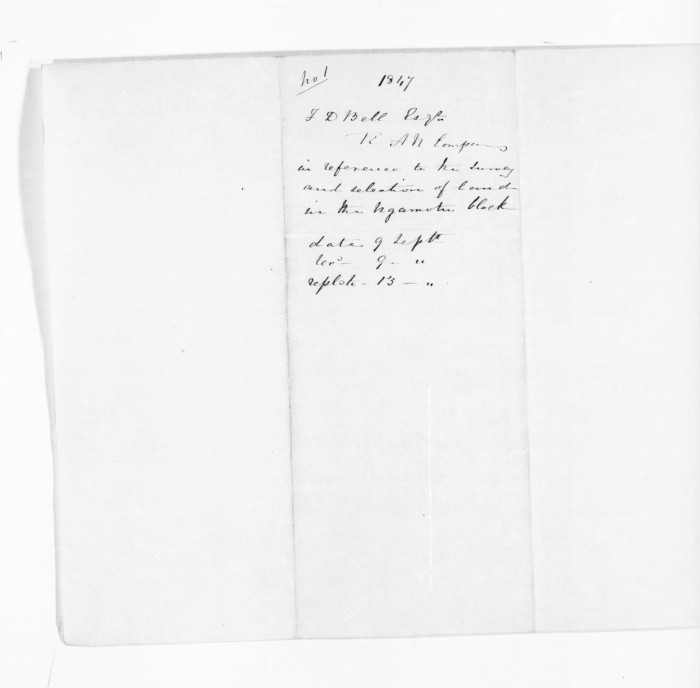 No 1 1847
F D Bell Esqre
in reference to the Survey
and selection of land
in the Ngamotu block
date 9 Sept
recd - 9 - "
repld - 13 - "